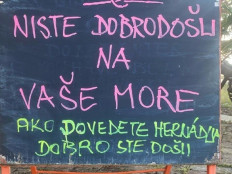 NISTE DOBRODOŠLI
NA
VAŠE MORE
AKO DOVEDETE
DOBRO STE DOŠLI